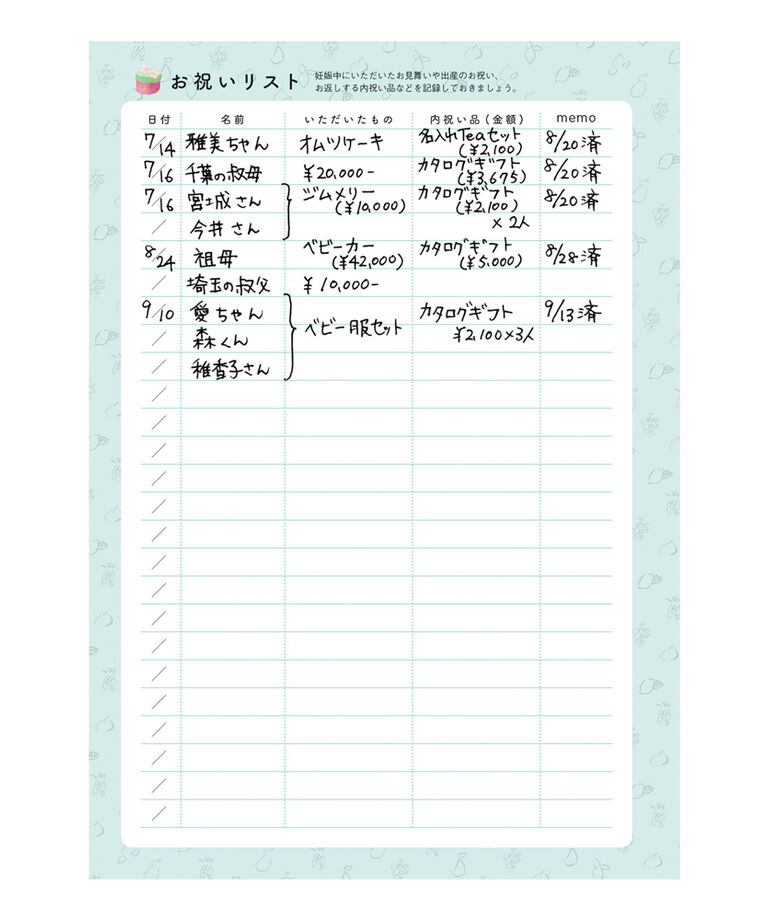 お祝いリスト
妊娠中にいただいたお見舞いや出産のお祝い、
お返しする内祝い品などを記録しておきましょう。
日付 名前 いただいたもの 内祝い品(金額) memo
7/14 雅美ちゃん オムツケーキ 名入れTeaセット (¥2,100) 8/20済
7/16 千葉の叔母 ¥20,000- カタログギフト (¥3,675) 8/20済
7/16 宮城さん ジムメリー (¥10,000) カタログギフト (¥2,100) 8/20済
/ 今井さん × 2人
8/24 祖母 ベビーカー (¥42,000) カタログギフト (¥5,000) 8/28済
/ 埼玉の叔父 ¥10,000-
9/10 愛ちゃん カタログギフト 9/13済
/ 森くん ベビー服セット ¥2,100×3人
/ 稚香子さん
/
/
/
/
/
/
/
/
/
/
/
/
/
/
/
/